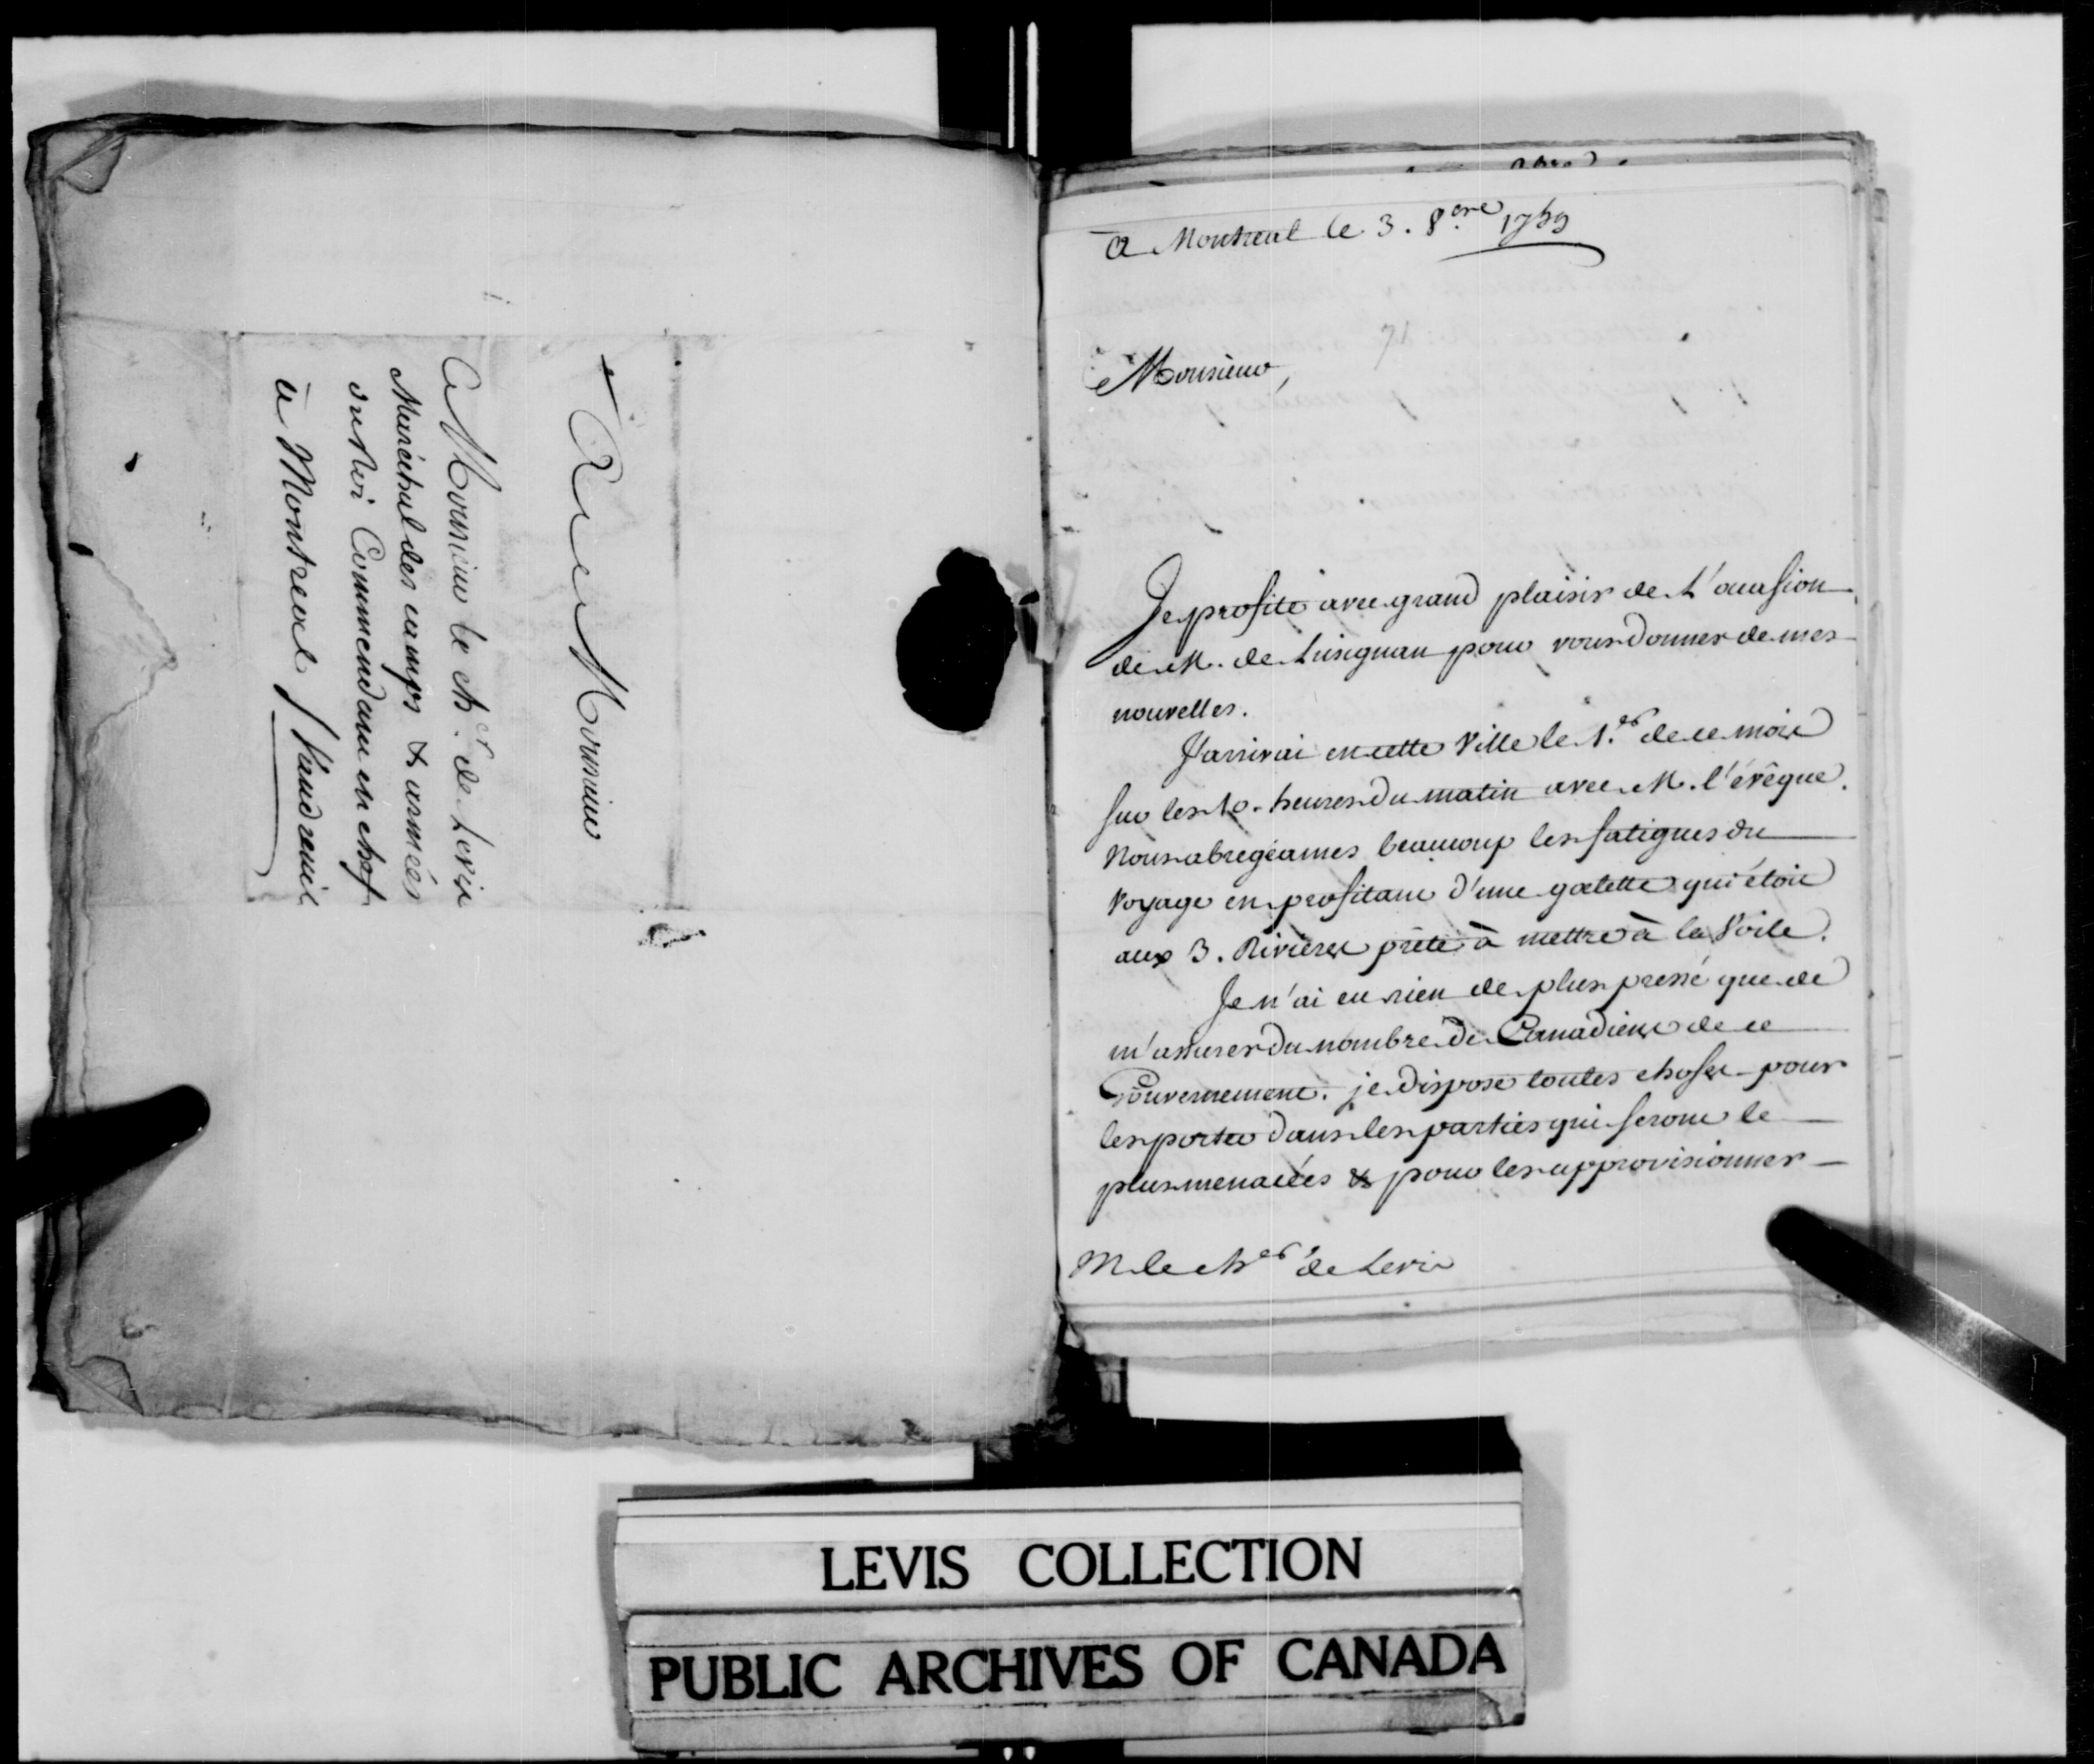 A Monsieur
A Monsieur le cher. de Levis
Maréchal des camps & armées
du Roi Commendant en chef
à Montreal / Vaudreuil
a Montreal le 3. 8bre 1759
71
Monsieur,
Je profite avec grand plaisir de L'occasion
de M. de Lusignan pour vous donner de mes
nouvelles.
J'arrivai en cette Ville le 1.er de ce mois
sur les 10. heures du matin avec M. l'évêque.
Nous abregeames beaucoup les fatigues du
Voyage en profitant d'une goelette qui étoit
aux 3. Rivieres prête à mettre à la Voile.
Je n'ai eu rien de plus pressé que de
m'assurer du nombre de Canadiens de ce
Gouvernement. je dispose toutes choses pour
les porter dans les parties qui seront le
plus menacées & pour les approvisionner
M. le cher de Levis
LEVIS COLLECTION
PUBLIC ARCHIVES OF CANADA